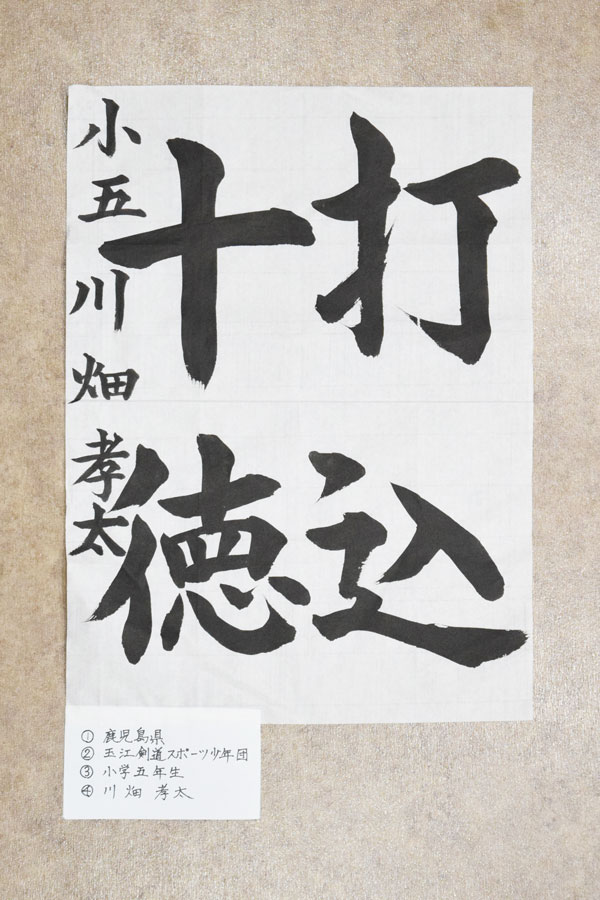 打込
十徳
小五 川畑 孝太
① 鹿児島県
② 玉江剣道スポーツ少年団
③ 小学五年生
④ 川畑 孝太